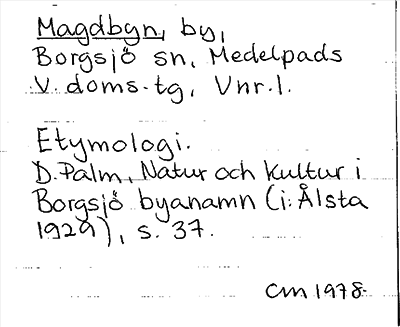 Magdbyn, by,
Borgsjö sn, Medelpads
V. doms.tg, Vnr.1.
Etymologi.
D. Palm, Natur och kultur i
Borgsjö byanamn (i: Ålsta
1929), s. 37.
CM 1978